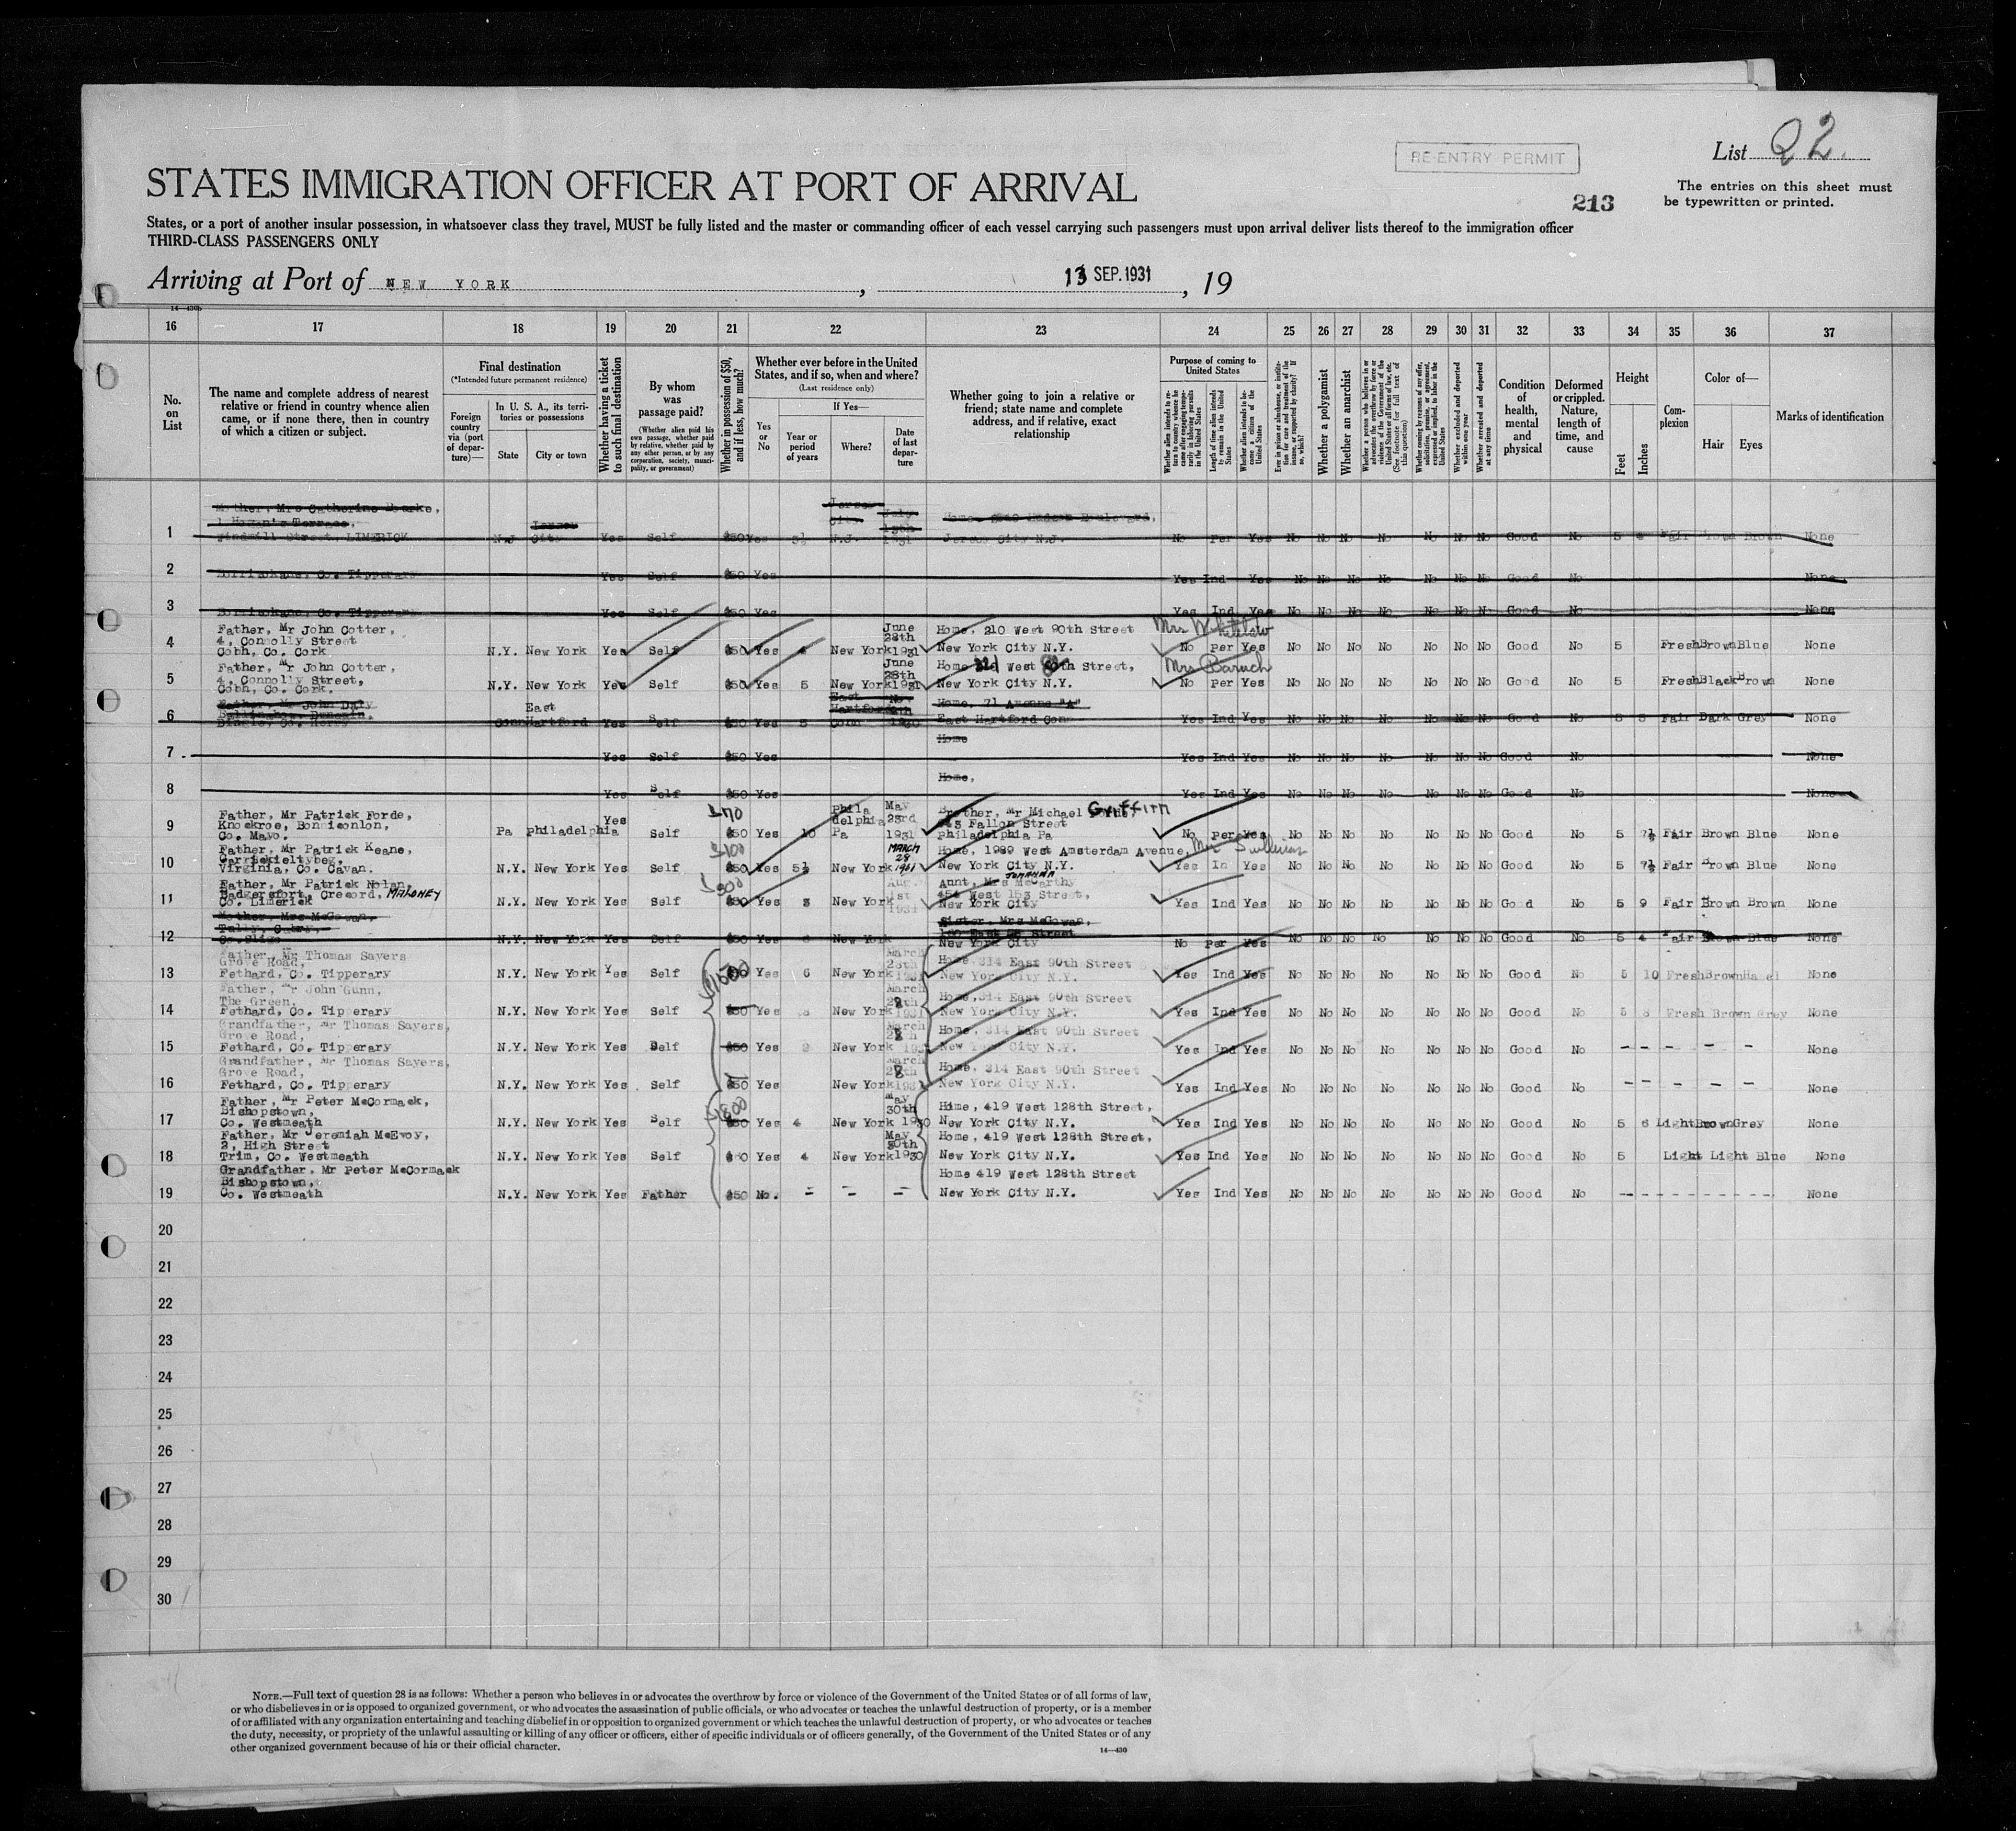 List 22.
RE-ENTRY PERMIT
STATES IMMIGRATION OFFICER AT PORT OF ARRIVAL
213
The entries on this sheet must
be typewritten or printed.
States, or a port of another insular possession, in whatsoever class they travel, MUST be fully listed and the master or commanding officer of each vessel carrying such passengers must upon arrival deliver lists thereof to the immigration officer
THIRD-CLASS PASSENGERS ONLY
Arriving at Port of NEW YORK, 13 SEP. 1931, 19
14—430b
16 17 18 19 20 21 22 23 24 25 26 27 28 29 30 31 32 33 34 35 36 37
No. on List
The name and complete address of nearest
relative or friend in country whence alien
came, or if none there, then in country
of which a citizen or subject.
Final destination
(*Intended future permanent residence)
Foreign country via (port of departure)—
In U. S. A., its territories or possessions
State City or town
Whether having a ticket to such final destination
By whom was passage paid?
(Whether alien paid his own passage, whether paid by relative, whether paid by any other person, or by any corporation, society, municipality, or government)
Whether in possession of $50, and if less, how much?
Whether ever before in the United
States, and if so, when and where?
(Last residence only)
Yes or No
If Yes—
Year or period of years
Where?
Date of last departure
Whether going to join a relative or
friend; state name and complete
address, and if relative, exact
relationship
Purpose of coming to United States
Length of time alien intends to remain in the United States
Whether alien intends to become a citizen of the United States
Whether a polygamist
Whether an anarchist
Whether excluded and deported within one year
Whether arrested and deported at any time
Condition of health, mental and physical
Deformed or crippled. Nature, length of time, and cause
Height
Feet Inches
Complexion
Color of—
Hair Eyes
Marks of identification
Mother, Mrs Catherine Bourke,
1 Hogan's Terrace,
1 Windmill Street, LIMERICK N.J Jersey City Yes Self $50 Yes 5½ Jersey City N.J. July 1931 Jersey City N.J. No Per Yes No No No No No No No Good No 5 4 Fair Brown Brown None
2 Borrisokane, Co. Tipperary Yes Self $50 Yes Yes Ind Yes No No No No No No No Good No None
3 Borrisokane, Co. Tipperary Yes Self $50 Yes Yes Ind Yes No No No No No No No Good No None
Father, Mr John Cotter, June Home, 210 West 90th Street Mrs Whitelaw
4, Connolly Street 28th
4 Cobh, Co. Cork N.Y. New York Yes Self $50 Yes 4 New York 1931 New York City N.Y. No per Yes No No No No No No No Good No 5 Fresh Brown Blue None
Father, Mr John Cotter, June Home West Street, Mrs Baruch
4, Connolly Street, 28th
5 Cobh, Co. Cork. N.Y. New York Yes Self $50 Yes 5 New York 1931 New York City N.Y. No Per Yes No No No No No No No Good No 5 Fresh Black Brown None
Father, Mr John Daly East Hartford Home, 71 Avenue "A"
6 Conn East Hartford Yes Self $50 Yes 5 Conn 1930 East Hartford Conn Yes Ind Yes No No No No No No No Good No 5 5 Fair Dark Grey None
Home
7 Yes Self $50 Yes Yes Ind Yes No No No No No No No Good No None
Home,
8 Yes Self $50 Yes Yes Ind Yes No No No No No No No Good No None
Father, Mr Patrick Forde, 70 Phila May Brother, Mr Michael Griffin
Knockroe, Bonniconlon, Yes delphia 23rd Fallon Street
9 Co. Mayo. Pa Philadelphia Self $50 Yes 10 Pa 1931 Philadelphia Pa No per Yes No No No No No No No Good No 5 7½ Fair Brown Blue None
Father, Mr Patrick Keane, 100 MARCH Home, 1989 West Amsterdam Avenue, Mr Sullivan
28
10 Virginia, Co. Cavan. N.Y. New York Yes Self $50 Yes 5½ New York 1931 New York City N.Y. Yes In Yes No No No No No No No Good No 5 7½ Fair Brown Blue None
Father, Mr Patrick Nolan, 300 Aug Aunt, Mrs JOHANNA McCarthy
Badgersfort, Crecord, MAHONEY 1st 454 West 153 Street,
11 Co. Limerick N.Y. New York Yes Self $50 Yes 3 New York 1931 New York City Yes Ind Yes No No No No No No No Good No 5 9 Fair Brown Brown None
Mother, Mrs McGowan, Sister, Mrs McGowan,
12 Co. Sligo N.Y. New York Yes Self $50 Yes New York New York City No per Yes No No No No No No No Good No 5 4 Fair Brown Blue None
Father, Mr Thomas Sayers March
Grove Road, 28th Home, 314 East 90th Street
13 Fethard, Co. Tipperary N.Y. New York Yes Self 1500 Yes 6 New York 1931 New York City N.Y. Yes Ind Yes No No No No No No No Good No 5 10 Fresh Brown Hazel None
Father, Mr John Gunn, March
The Green, Home, 314 East 90th Street
14 Fethard, Co. Tipperary N.Y. New York Yes Self $50 Yes New York 1931 New York City N.Y. Yes Ind Yes No No No No No No No Good No 5 8 Fresh Brown Grey None
Grandfather, Mr Thomas Sayers, March
Grove Road, Home, 314 East 90th Street
15 Fethard, Co. Tipperary N.Y. New York Yes Self $50 Yes New York 1931 New York City N.Y. Yes Ind Yes No No No No No No No Good No - - - - - None
Grandfather, Mr Thomas Sayers, March
Grove Road, Home, 314 East 90th Street
16 Fethard, Co. Tipperary N.Y. New York Yes Self $50 Yes New York 1931 New York City N.Y. Yes Ind Yes No No No No No No No Good No - - - - - None
Father, Mr Peter McCormack, 1800 May
Bishopstown, 30th Hime, 419 West 128th Street,
17 Co. Westmeath N.Y. New York Yes Self $50 Yes 4 New York 1930 New York City N.Y. Yes Ind Yes No No No No No No No Good No 5 6 Light Brown Grey None
Father, Mr Jeremiah McEvoy, May Home, 419 West 128th Street,
2, High Street 30th
18 Trim, Co. Westmeath N.Y. New York Yes Self $50 Yes 4 New York 1930 New York City N.Y. Yes Ind Yes No No No No No No No Good No 5 Light Light Blue None
Grandfather, Mr Peter McCormack Home 419 West 128th Street
Bishopstown,
19 Co. Westmeath N.Y. New York Yes Father $50 No. - - - New York City N.Y. Yes Ind Yes No No No No No No No Good No - - - - - - None
20
21
22
23
24
25
26
27
28
29
30
NOTE.—Full text of question 28 is as follows: Whether a person who believes in or advocates the overthrow by force or violence of the Government of the United States or of all forms of law,
or who disbelieves in or is opposed to organized government, or who advocates the assassination of public officials, or who advocates or teaches the unlawful destruction of property, or is a member
of or affiliated with any organization entertaining and teaching disbelief in or opposition to organized government or which teaches the unlawful destruction of property, or who advocates or teaches
the duty, necessity, or propriety of the unlawful assaulting or killing of any officer or officers, either of specific individuals or of officers generally, of the Government of the United States or of any
other organized government because of his or their official character.
14—430